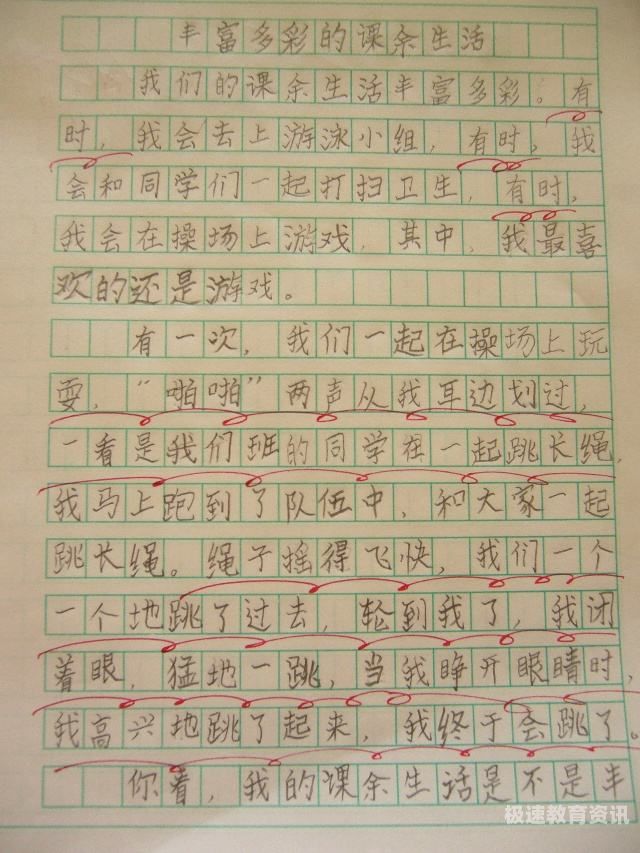 丰富多彩的课余生活
我们的课余生活丰富多彩。有
时，我会去上游泳小组，有时，我
会和同学们一起打扫卫生，有时，
我会在操场上游戏，其中，我最喜
欢的还是游戏。
有一次，我们一起在操场上玩
耍，“啪啪”两声从我耳边划过，
一看是我们班的同学在一起跳长绳，
我马上跑到了队伍中，和大家一起
跳长绳。绳子摇得飞快，我们一个
一个地跳了过去，轮到我了，我闭
着眼，猛地一跳，当我睁开眼睛时，
我高兴地跳了起来，我终于会跳了。
你看，我的课余生活是不是丰
极速教育资讯